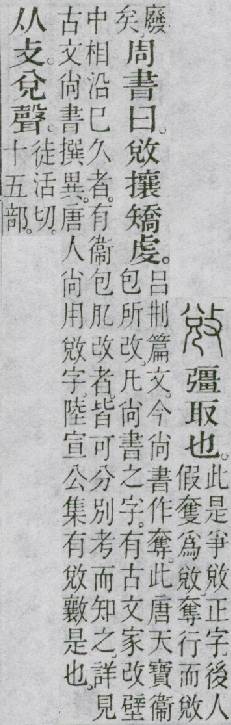 敓 彊取也。
此是爭敓正字。後人
假奪爲敓。奪行而敓
廢
矣。
周書曰。敓攘矯虔。
呂刑篇文。今尙書作奪。此唐天寶衞
包所改。凡尙書之字。有古文家改壁
中相沿已久者。有衞包肊改者。皆可分別考而知之。詳見
古文尙書撰異。唐人尙用敓字。陸宣公集有敓數是也。
从攴。兌聲。
徒活切。
十五部。